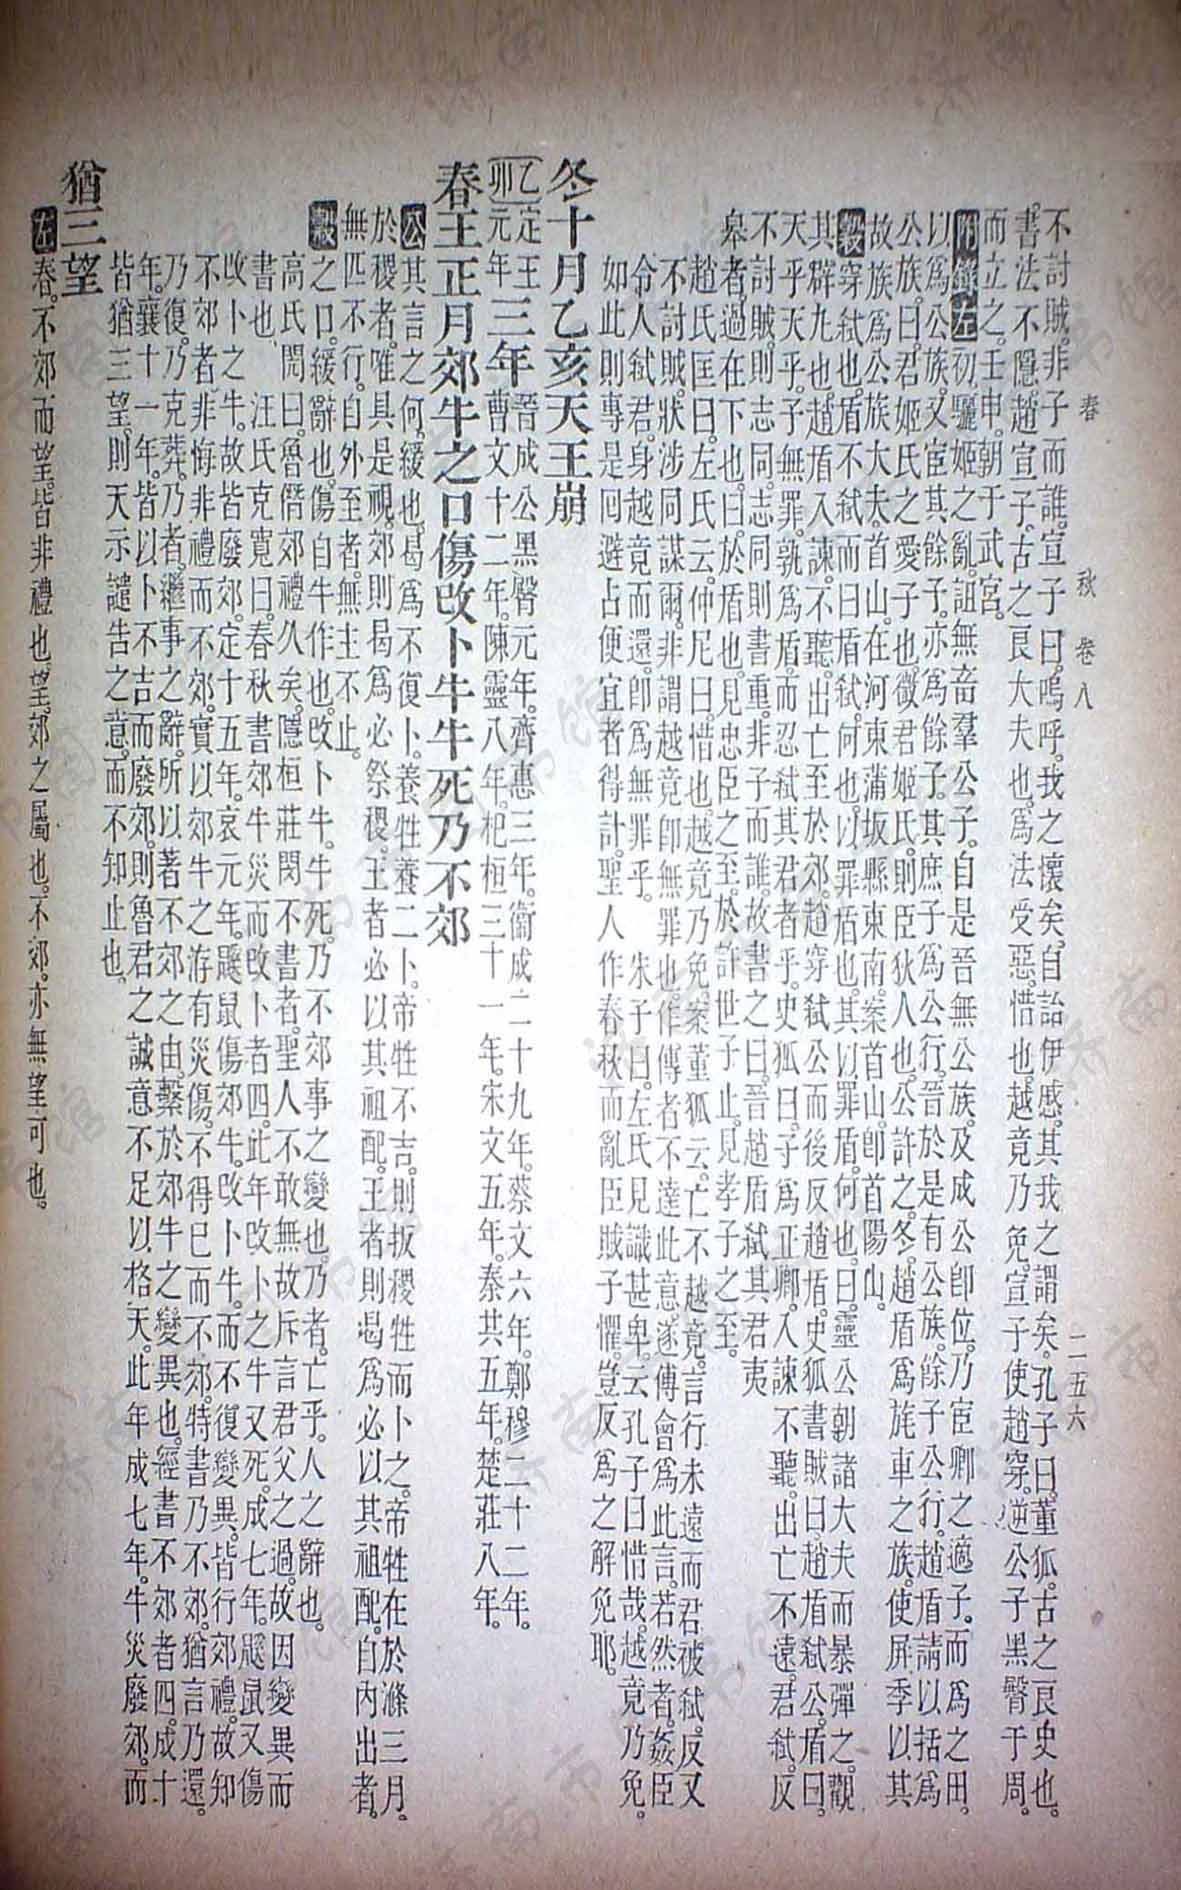 春　秋　卷八　二五六
不討賊。非子而誰。宣子曰。嗚呼。我之懷矣。自詒伊慼。其我之謂矣。孔子曰。董狐。古之良史也。
書法不隱。趙宣子。古之良大夫也。爲法受惡。惜也。越竟乃免。宣子使趙穿。逆公子黑臀于周。
而立之。壬申。朝于武宮。
附錄左初。驪姬之亂。詛無畜羣公子。自是晉無公族。及成公卽位。乃宦卿之適子。而爲之田。
以爲公族。又宦其餘子。亦爲餘子。其庶子爲公行。晉於是有公族。餘子公行。趙盾請以括爲
公族。曰。君姬氏之愛子也。微君姬氏。則臣狄人也。公許之。冬。趙盾爲旄車之族。使屏季以其
故族爲公族大夫。首山。在河東蒲坂縣東南。案首山。卽首陽山。
穀穿弒也。盾不弒而曰盾弒。何也。以罪盾也。其以罪盾。何也。曰。靈公朝諸大夫而暴彈之。觀
其辟丸也。趙盾入諫。不聽。出亡至於郊。趙穿弒公而後反趙盾。史狐書賊曰。趙盾弒公。盾曰。
天乎天乎。子無罪。孰爲盾。而忍弒其君者乎。史狐曰。子爲正卿。入諫不聽。出亡不遠。君弒。反
不討賊。則志同。志同則書重。非子而誰。故書之曰。晉趙盾弒其君夷
皋者。過在下也。曰。於盾也。見忠臣之至。於許世子止。見孝子之至。
趙氏匡曰。左氏云。仲尼曰。惜也。越竟乃免。案董狐云。亡不越竟。言行未遠而君被弒。反又
不討賊。狀涉同謀爾。非謂越竟卽無罪也。作傳者不達此意。遂傅會爲此言。若然者。姦臣
令人弒君。身越竟而還。卽爲無罪乎。　朱子曰。左氏見識甚卑。云孔子曰惜哉。越竟乃免。
如此則專是回避占便宜者得計。聖人作春秋而亂臣賊子懼。豈反爲之解免耶。
冬十月乙亥天王崩
乙卯定王元年三年晉成公黑臀元年。齊惠三年。衞成二十九年。蔡文六年。鄭穆二十二年。
曹文十二年。陳靈八年。杞桓三十一年。宋文五年。秦共五年。楚莊八年。
春王正月郊牛之口傷改卜牛牛死乃不郊
公其言之何。緩也。曷爲不復卜。養牲養二卜。帝牲不吉。則扳稷牲而卜之。帝牲在於滌三月。
於稷者。唯具是視。郊則曷爲必祭稷。王者必以其祖配。王者則曷爲必以其祖配。自內出者。
無匹不行。自外至者。無主不止。
穀之口。緩辭也。傷自牛作也。改卜牛。牛死。乃不郊事之變也。乃者。亡乎人之辭也。
高氏閌曰。魯僭郊禮久矣。隱桓莊閔不書者。聖人不敢無故斥言君父之過。故因變異而
書也　汪氏克寬曰。春秋書郊牛災而改卜者四。此年改卜之牛又死。成七年。鼷鼠又傷
改卜之牛。故皆廢郊。定十五年。哀元年。鼷鼠傷郊牛。改卜牛。而不復變異。皆行郊禮。故知
不郊者。非悔非禮而不郊。實以郊牛之洊有災傷。不得已而不郊。特書乃不郊。猶言乃還。
乃復。乃克葬。乃者。繼事之辭。所以著不郊之由。繫於郊牛之變異也。經書不郊者四。成十
年。襄十一年。皆以卜不吉而廢郊。則魯君之誠意不足以格天。此年成七年。牛災廢郊。而
皆猶三望。則天示譴告之意。而不知止也。
猶三望
左春。不郊而望。皆非禮也。望。郊之屬也。不郊。亦無望可也。